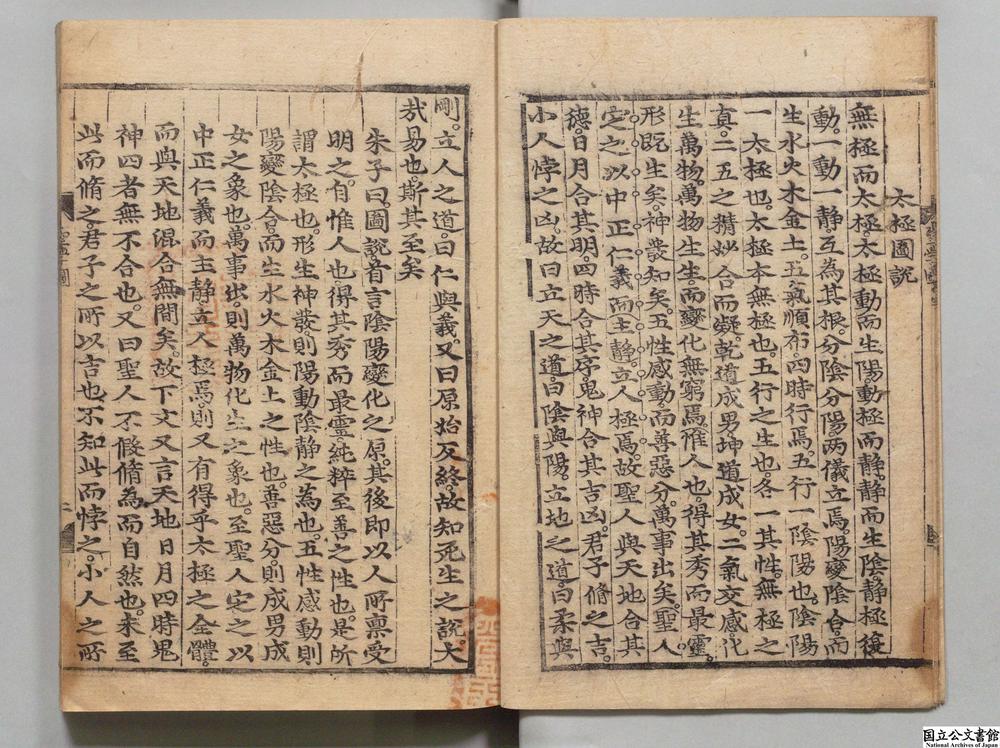 太極圖說
無極而太極太極動而生陽動極而靜靜而生陰靜極復
動一動一靜互為其根分陰分陽兩儀立焉陽變陰合而
生水火木金土五氣順布四時行焉五行一陰陽也陰陽
一太極也太極本無極也五行之生也各一其性無極之
真二五之精妙合而凝乾道成男坤道成女二氣交感化
生萬物萬物生生而變化無窮焉惟人也得其秀而最靈
形既生矣神發知矣五性感動而善惡分萬事出矣聖人
定之以中正仁義而主靜立人極焉故聖人與天地合其
德日月合其明四時合其序鬼神合其吉凶君子脩之吉
小人悖之凶故曰立天之道曰陰與陽立地之道曰柔與
剛立人之道曰仁與義又曰原始反終故知死生之說大
㢤易也斯其至矣
朱子曰圖說首言陰陽變化之原其後即以人所禀受
明之自惟人也得其秀而最靈純粹至善之性也是所
謂太極也形生神發則陽動陰靜之為也五性感動則
陽變陰合而生水火木金土之性也善惡分則成男成
女之象也萬事出則萬物化生之象也至聖人定之以
中正仁義而主靜立人極焉則又有得乎太極之全體
而與天地混合無間矣故下文又言天地日月四時鬼
神四者無不合也又曰聖人不假脩為而自然也未至
此而脩之君子之所以吉也不知此而悖之小人之所
国立公文書館
National Archives of Japan